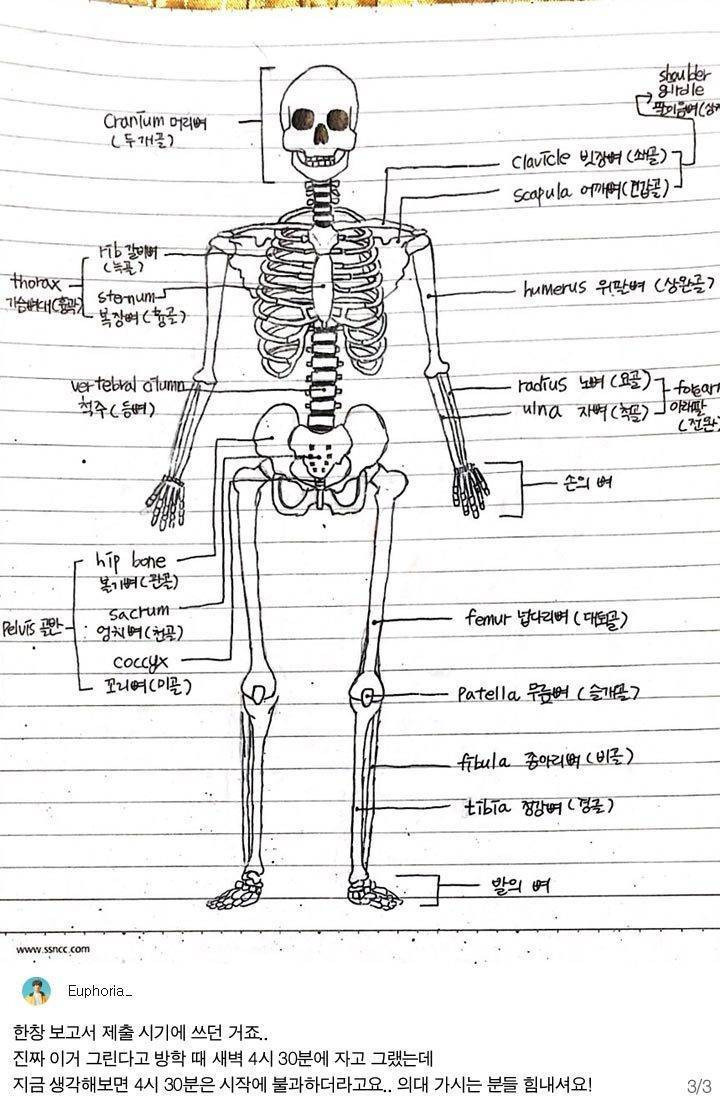 shoulder
girdle
팔이음뼈(상지
cranium 머리뼈
(두개골)
clavicle 빗장뼈 (쇄골)
scapula 어깨뼈(견갑골)
rib 갈비뼈
(늑골)
thorax
가슴뼈대(흉곽)
sternum
복장뼈(흉골)
humerus 위팔뼈 (상완골)
vertebral
척주(등뼈)
radius 노뼈 (요골)
ulna 자뼈 (척골)
forearm
아래팔
(전완)
손의 뼈
hip bone
볼기뼈(관골)
sacrum
엉치뼈(천골)
Pelvis 골반
coccyx
꼬리뼈(미골)
femur 넙다리뼈 (대퇴골)
patella 무릎뼈 (슬개골)
fibula 종아리뼈 (비골)
tibia 정강뼈 (경골)
발의 뼈
www.ssncc.com
Euphoria_
한창 보고서 제출 시기에 쓰던 거죠..
진짜 이거 그린다고 방학 때 새벽 4시 30분에 자고 그랬는데
지금 생각해보면 4시 30분은 시작에 불과하더라고요.. 의대 가시는 분들 힘내셔요!
3/3